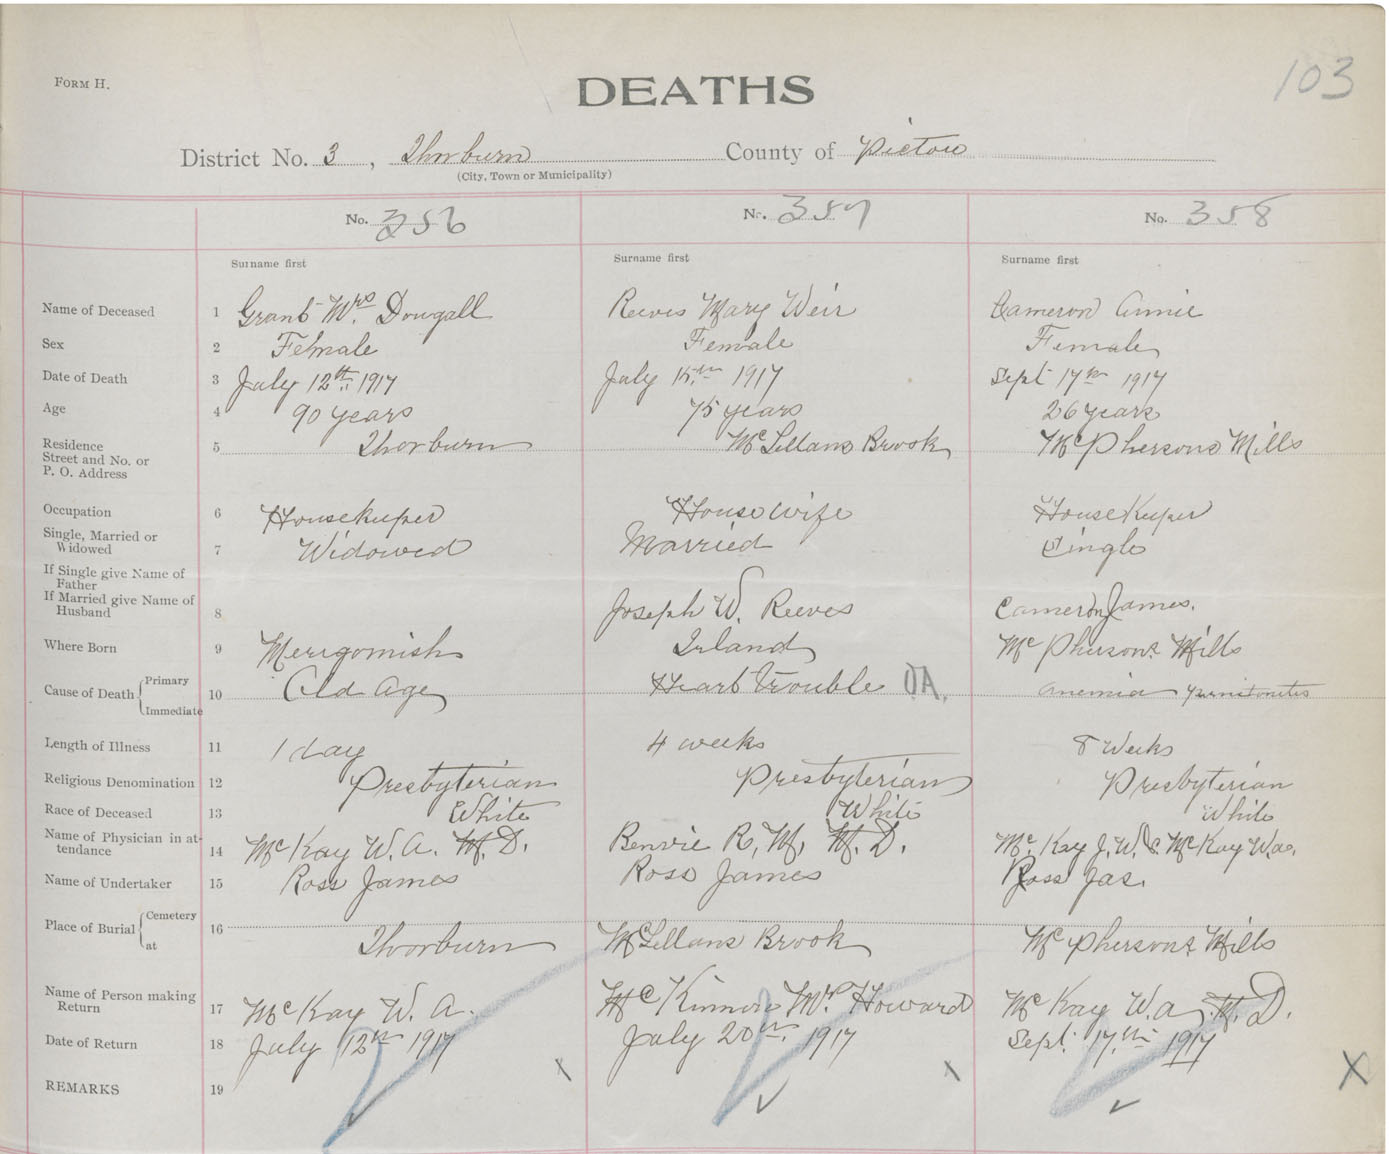 FORM H.
DEATHS
103
District No. 3, Thorburn County of Pictou
(City, Town or Municipality)
No. 356 No. 357 No. 358
Surname first Surname first Surname first
Name of Deceased 1 Grant Mrs. Dougall Reeves Mary Weir Cameron Annie
Sex 2 Female Female Female
Date of Death 3 July 12th. 1917 July 15th 1917 Sept 17th 1917
Age 4 90 years 75 years 26 years
Residence
Street and No. or
P. O. Address 5 Thorburn McLellans Brook McPhersons Mills
Occupation 6 Housekeeper Housewife HouseKeeper
Single, Married or
Widowed 7 Widowed Married Single
If Single give Name of
Father
If Married give Name of
Husband 8 Joseph W. Reeves Cameron James.
Where Born 9 Merigomish Irland McPhersons Mills
Cause of Death { Primary
Immediate 10 Old Age Heart Trouble O.A. Anemia
Length of Illness 11 1 day 4 weeks 8 Weeks
Religious Denomination 12 Presbyterian Presbyterian Presbyterian
Race of Deceased 13 White White White
Name of Physician in at-
tendance 14 McKay W. A. M.D. Benvie R. M. M.D. McKay J. W. & McKay W.A.
Name of Undertaker 15 Ross James Ross James Ross Jas.
Place of Burial { Cemetery
at 16 Thorburn McLellans Brook McPhersons Mills
Name of Person making
Return 17 McKay W. A. McKinnon Mr. Howard McKay W.A. M.D.
Date of Return 18 July 12th 1917 July 20th. 1917 Sept. 17th 1917
REMARKS 19 x x X